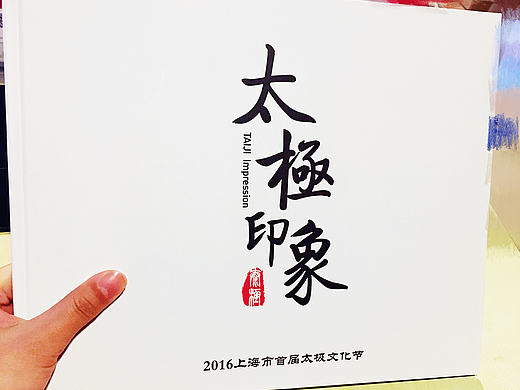 太極印象
TAIJI Impression
2016上海市首届太极文化节